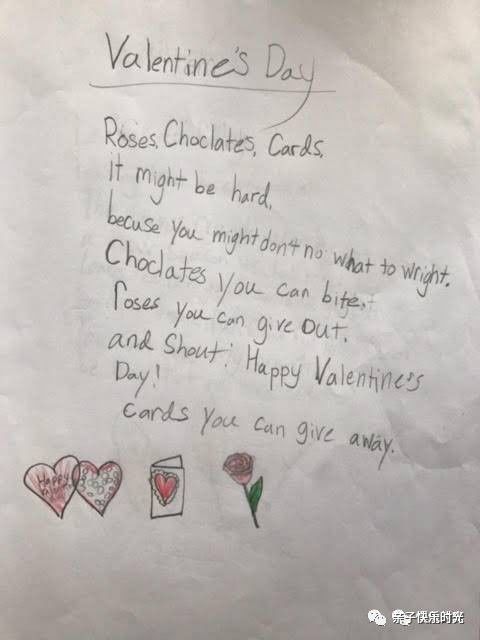 Valentine's Day
Roses, Choclates, Cards,
it might be hard,
becuse you might don't no what to wright.
Choclates you can bite,
roses you can give out,
and Shout: Happy Valentine's
Day!
cards you can give away.
Happy
亲子快乐时光